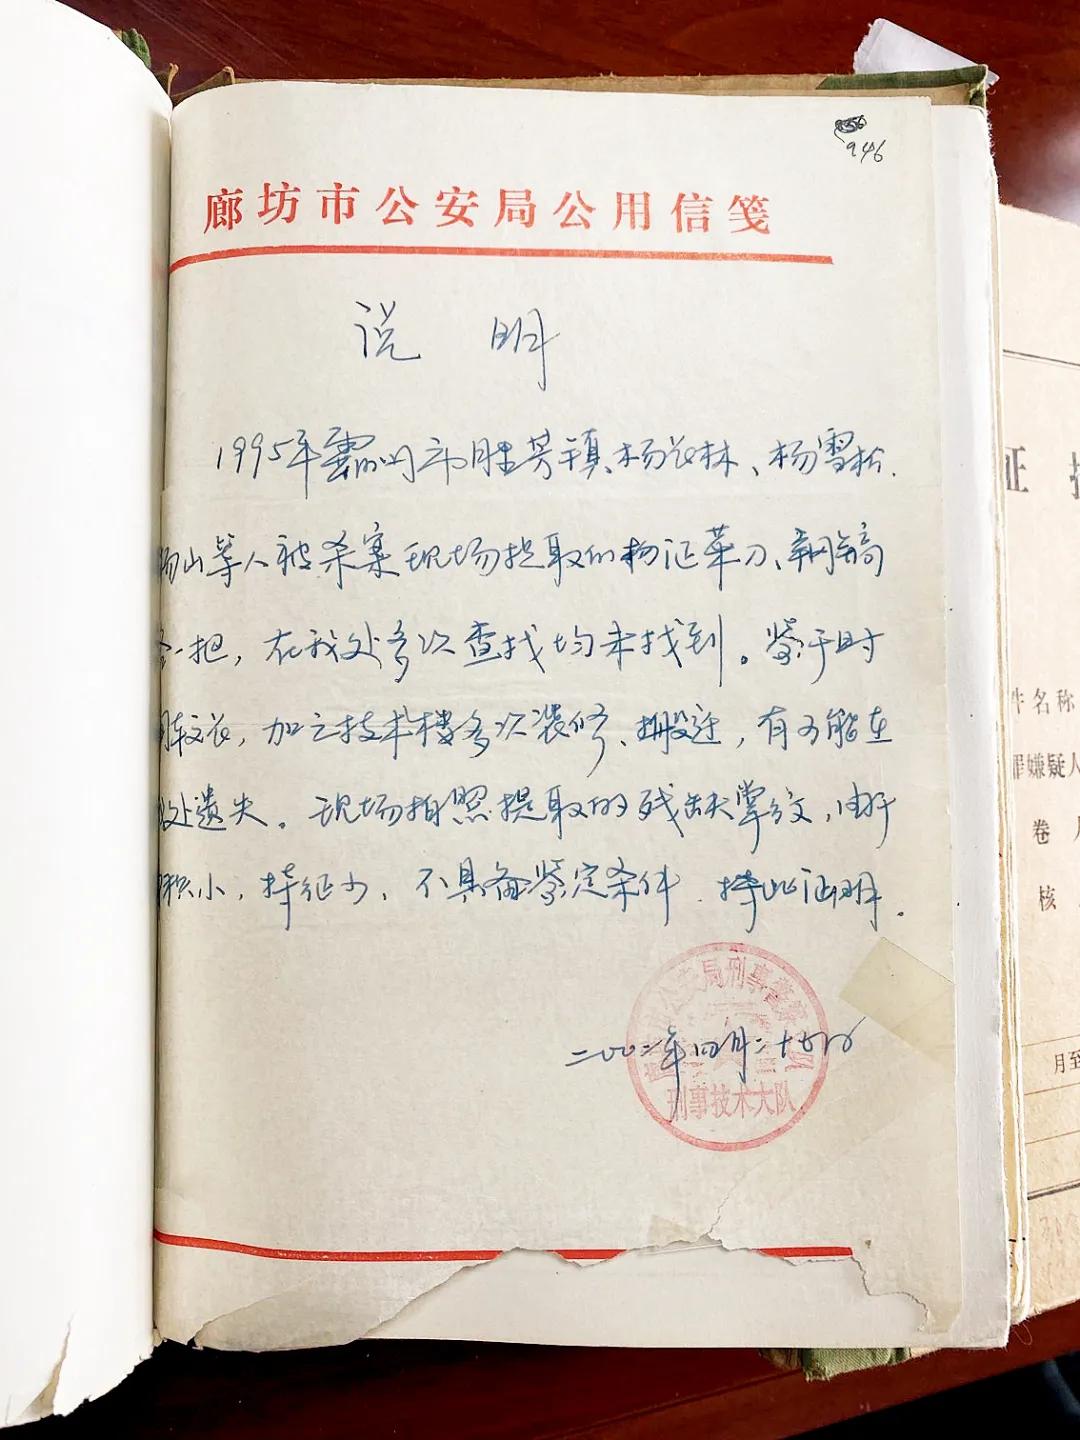 946
廊坊市公安局公用信笺
说 明
1995年霸州市胜芳镇杨长林、杨雪松、
杨山等人被杀案现场提取的物证菜刀、钢镐
各一把，在我处多次查找均未找到。鉴于时
间较长，加之技术楼多次装修、搬迁，有可能在
我处遗失。现场拍照提取的残缺掌纹，由于
面积小，特征少，不具备鉴定条件。特此证明。
市公安局刑事警察
刑事技术大队
二00二年四月二十
证
件名称
罪嫌疑人
卷
核
月至